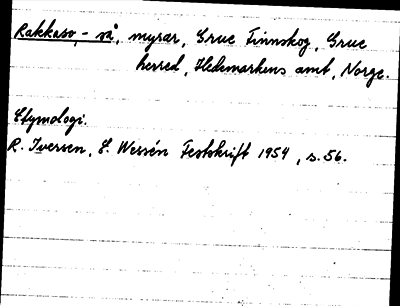 Rakkaso, - så, myrar, Grue Finnskog, Grue
herred, Hedemarkens amt, Norge.
Etymologi.
R. Iversen, E. Wessén Festskrift 1954, s. 56.